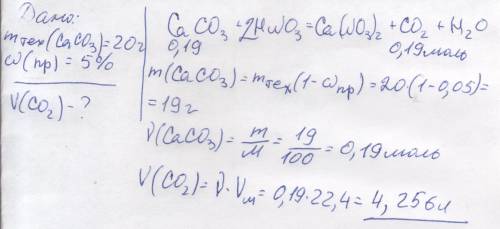 Дано:
m тех (CaCO₃) = 20 г
ω(пр) = 5%
V(CO₂) - ?
CaCO₃ + 2HNO₃ = Ca(NO₃)₂ + CO₂ + H₂O
0,19 0,19 моль
m(CaCO₃) = m тех (1 - ω пр) = 20·(1-0,05) =
= 19 г
ν(CaCO₃) = m/M = 19/100 = 0,19 моль
V(CO₂) = ν · Vм = 0,19·22,4 = 4,256 л